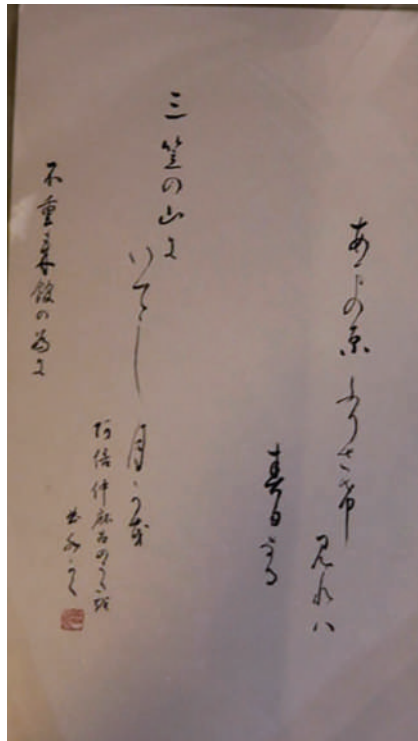 あまの原 ふりさ希
見れハ
春日なる
三笠の山に
いてし 月う裳
阿倍仲麻呂のうた
不重来館の為に